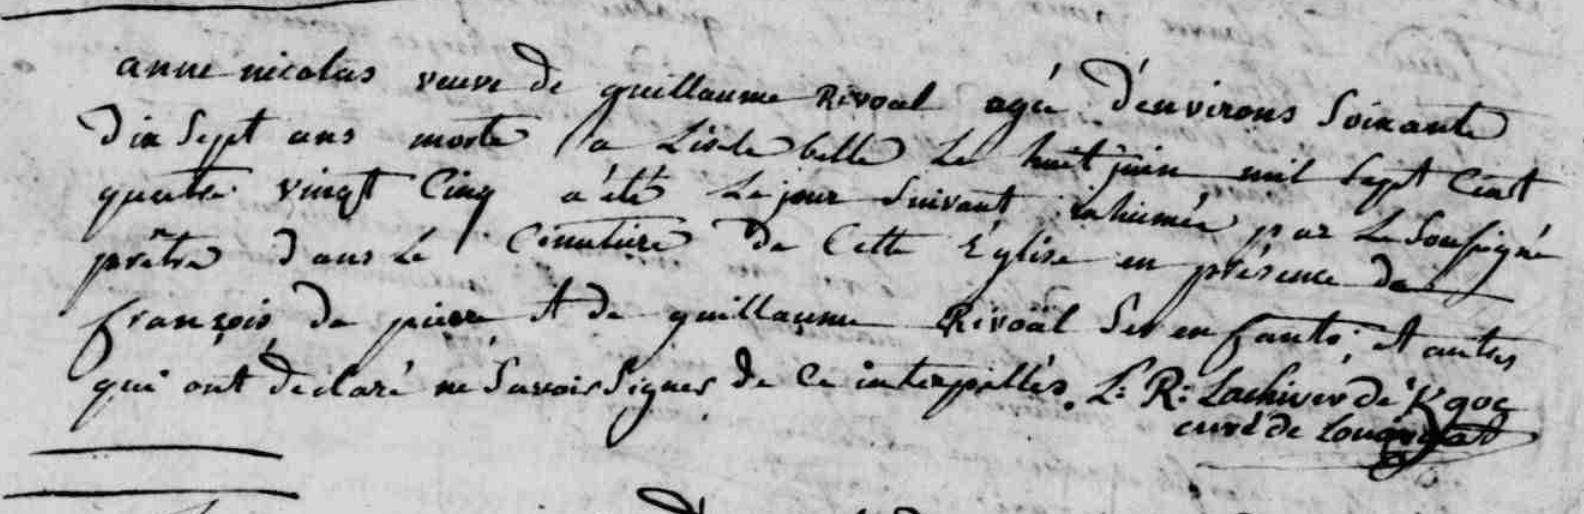 anne nicolas veuve de guillaume Rivoal agée d'environs Soixante
dix Sept ans morte a Lisle belle Le huit juin mil Sept Cent
quatre vingt Cinq a été Le jour Suivant inhumée par Le Sousigné
prêtre dans Le Cimetiere de Cette Eglise en présence de
françois, de pierre, et de guillaume Rivoal Ses enfants, et autres
qui ont declaré ne Savoir Signer de Ce interpellés. L: R: Lachiver de K/goz
curé de Louargat